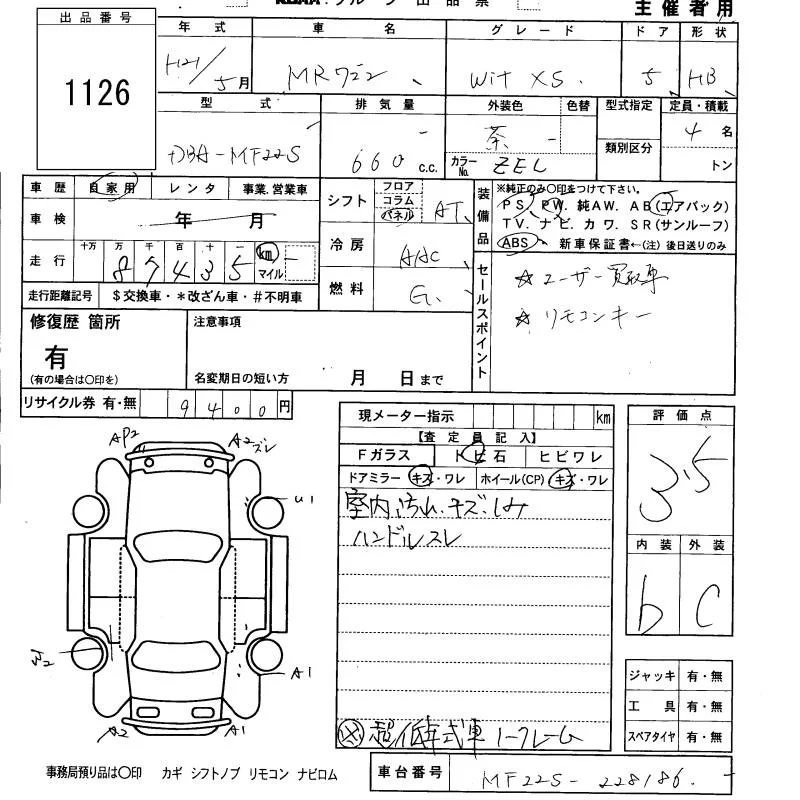 出品番号
1126
主催者用
年式 車名 グレード ドア 形状
H21/5月 MRワゴン Wit XS 5 HB
型式 排気量 外装色 色替 型式指定 定員・積載
DBA-MF22S 660 c.c. 茶 - 類別区分 4名
カラーNo. ZEL トン
車歴 自家用 レンタ 事業.営業車
車検 年 月
走行 十万 万 千 百 十 一
8 7 4 3 5 km マイル
走行距離記号 $交換車・*改ざん車・#不明車
シフト フロア コラム パネル AT
冷房 AAC
燃料 G
装備品 ※純正のみ〇印をつけて下さい。
PS. PW. 純AW. AB(エアバック)
TV. ナビ. カワ. SR(サンルーフ)
ABS 新車保証書←(注) 後日送りのみ
セールスポイント
☆ユーザー買取車
☆リモコンキー
修復歴 箇所
有
(有の場合は〇印を)
注意事項
名変期日の短い方 月 日まで
リサイクル券 有・無 9400円
現メーター指示 km
【査定員記入】
Fガラス トビ石 ヒビワレ
ドアミラー キズ・ワレ ホイール(CP) キズ・ワレ
室内汚れ.キズ.しみ
ハンドルスレ
※超低年式車ノークレーム
評価点
3.5
内装 外装
b C
ジャッキ 有・無
工具 有・無
スペアタイヤ 有・無
AP2 A2 ズレ
U1
A1
A2 A1
事務局預り品は〇印 カギ シフトノブ リモコン ナビロム
車台番号 MF22S-228186